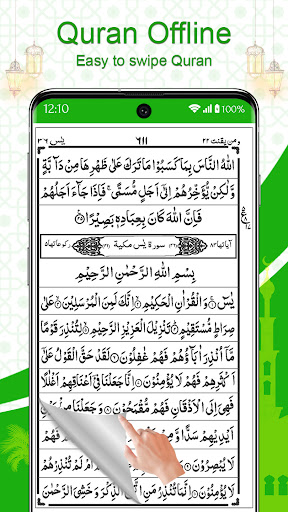 Quran Offline
Easy to swipe Quran
12:10
يٰسٓ ٣٦
٦١١
ومن يقنت ٢٢
اللّٰهُ النَّاسَ بِمَا كَسَبُوْا مَا تَرَكَ عَلٰى ظَهْرِهَا مِنْ دَآبَّةٍ
وَّلٰكِنْ يُّؤَخِّرُهُمْ اِلٰٓى اَجَلٍ مُّسَمًّى ۚ فَاِذَا جَآءَ اَجَلُهُمْ
فَاِنَّ اللّٰهَ كَانَ بِعِبَادِهٖ بَصِيْرًا
اٰياتها ٨٣ سورة يٰسٓ مكية ركوعاتها ٥
بِسْمِ اللّٰهِ الرَّحْمٰنِ الرَّحِيْمِ
يٰسٓ ۚ وَالْقُرْاٰنِ الْحَكِيْمِ ۙ اِنَّكَ لَمِنَ الْمُرْسَلِيْنَ ۙ عَلٰى
صِرَاطٍ مُّسْتَقِيْمٍ ۗ تَنْزِيْلَ الْعَزِيْزِ الرَّحِيْمِ ۙ لِتُنْذِرَ قَوْمًا
مَّآ اُنْذِرَ اٰبَآؤُهُمْ فَهُمْ غٰفِلُوْنَ لَقَدْ حَقَّ الْقَوْلُ عَلٰٓى
اَكْثَرِهِمْ فَهُمْ لَا يُؤْمِنُوْنَ اِنَّا جَعَلْنَا فِيْٓ اَعْنَاقِهِمْ اَغْلٰلًا
فَهِيَ اِلَى الْاَذْقَانِ فَهُمْ مُّقْمَحُوْنَ وَجَعَلْنَا مِنْۢ بَيْنِ
اَيْدِيْهِمْ سَدًّا
لَا يُبْصِرُوْنَ
لَا يُؤْمِنُوْنَ اِنَّمَا تُنْذِرُ مَنِ اتَّبَعَ الذِّكْرَ وَخَشِيَ الرَّحْمٰنَ